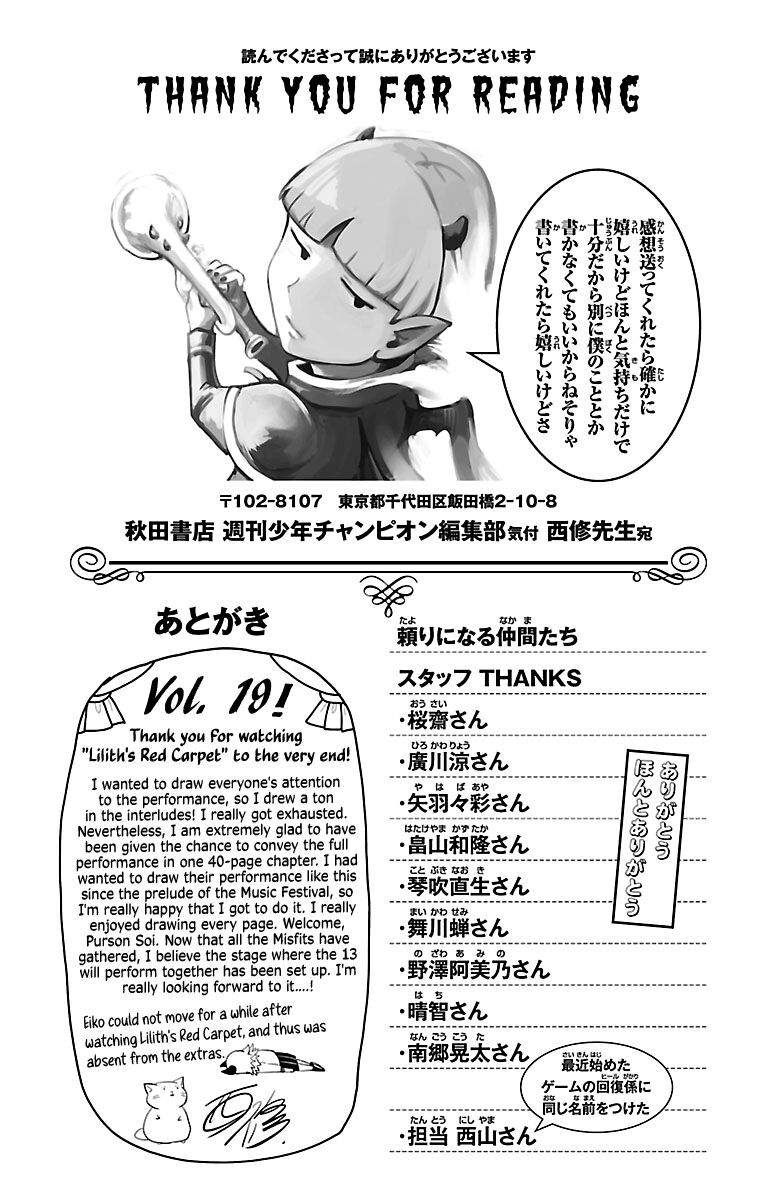 読んでくださって誠にありがとうございます
THANK YOU FOR READING
感想送ってくれたら確かに
嬉しいけどほんと気持ちだけで
十分だから別に僕のこととか
書かなくてもいいからねそりゃ
書いてくれたら嬉しいけどさ
〒102-8107 東京都千代田区飯田橋2-10-8
秋田書店 週刊少年チャンピオン編集部気付 西修先生宛
あとがき
Vol. 19!
Thank you for watching
"Lilith's Red Carpet" to the very end!
I wanted to draw everyone's attention
to the performance, so I drew a ton
in the interludes! I really got exhausted.
Nevertheless, I am extremely glad to have
been given the chance to convey the full
performance in one 40-page chapter. I had
wanted to draw their performance like this
since the prelude of the Music Festival, so
I'm really happy that I got to do it. I really
enjoyed drawing every page. Welcome,
Purson Soi. Now that all the Misfits have
gathered, I believe the stage where the 13
will perform together has been set up. I'm
really looking forward to it....!
Eiko could not move for a while after
watching Lilith's Red Carpet, and thus was
absent from the extras.
西修
頼りになる仲間たち
スタッフ THANKS
・桜齋さん
・廣川涼さん
・矢羽々彩さん
・畠山和隆さん
・琴吹直生さん
・舞川蝉さん
・野澤阿美乃さん
・晴智さん
・南郷晃太さん
・担当 西山さん
ありがとう
ほんとありがとう
最近始めた
ゲームの回復係に
同じ名前をつけた